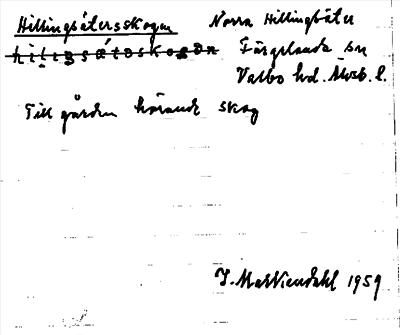 Hillingsätersskogen Norra Hillingsäter
Färgelanda sn
Valbo hd. Älvsb. l.
Till gården hörande skog
1959